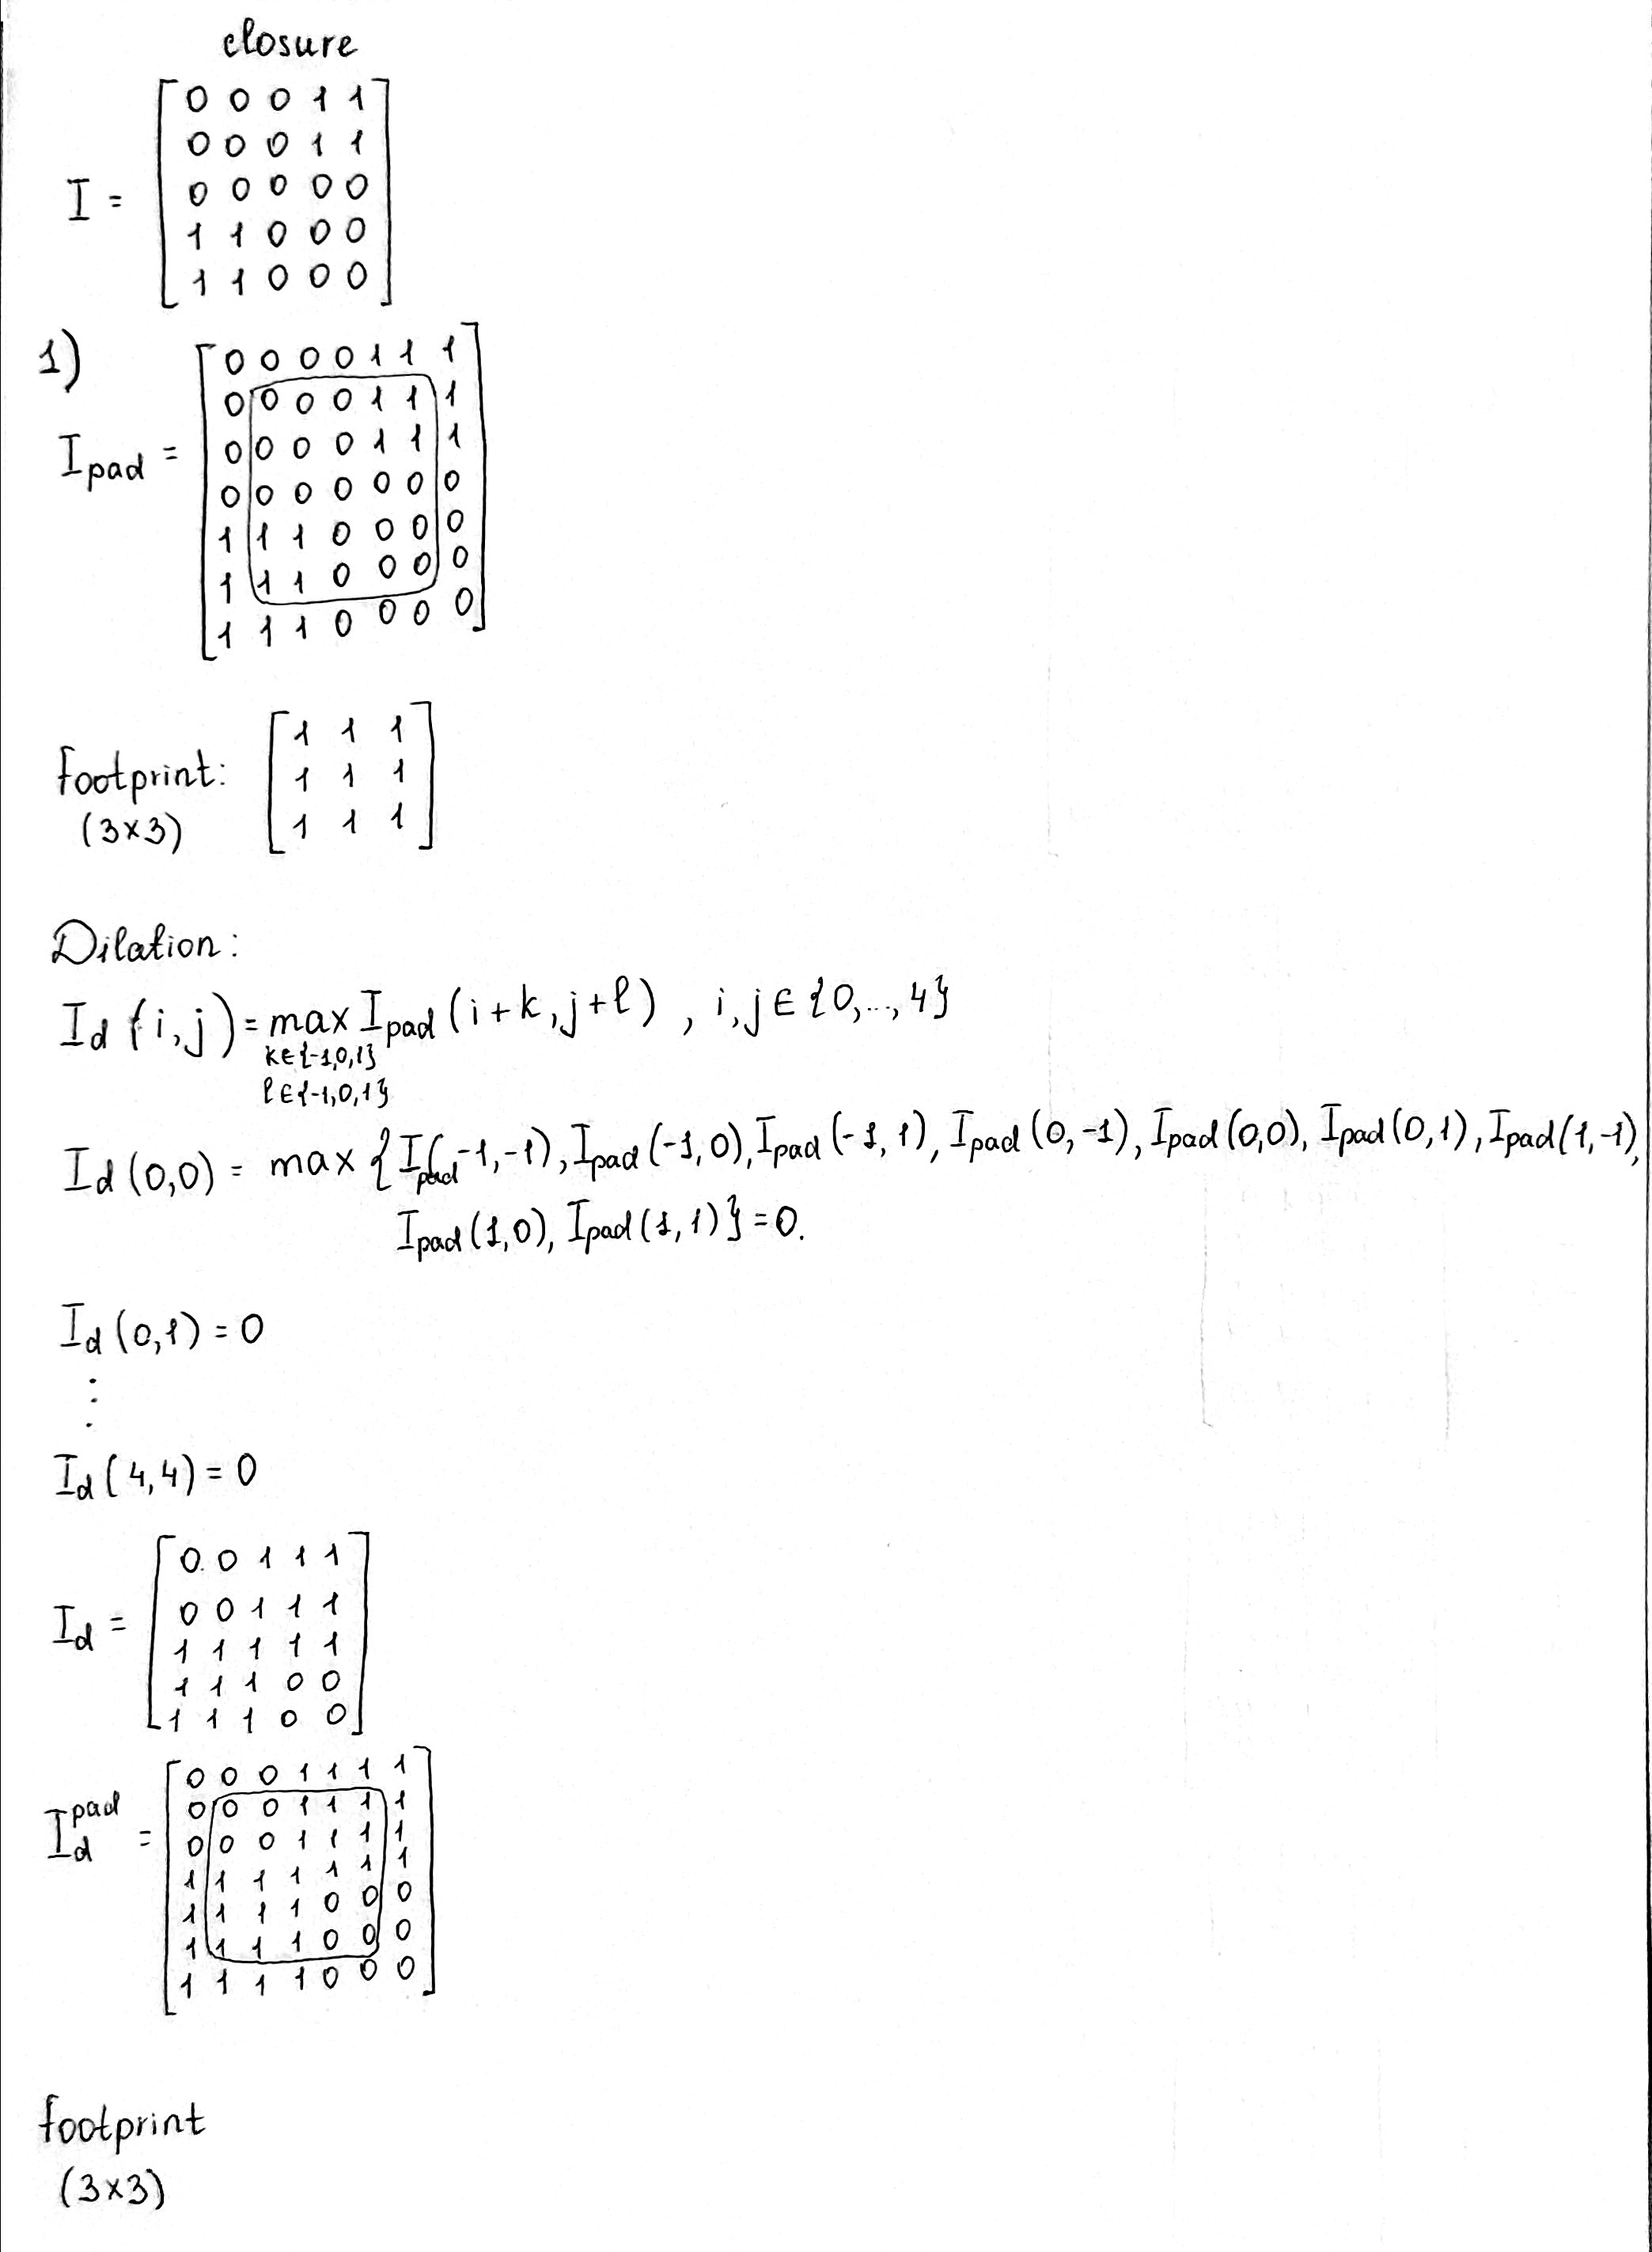 closure
I = [0 0 0 1 1
0 0 0 1 1
0 0 0 0 0
1 1 0 0 0
1 1 0 0 0]
1)
I_pad = [0 0 0 0 1 1 1
0 0 0 0 1 1 1
0 0 0 0 1 1 1
0 0 0 0 0 0 0
1 1 1 0 0 0 0
1 1 1 0 0 0 0
1 1 1 0 0 0 0]
footprint: (3×3) [1 1 1
1 1 1
1 1 1]
Dilation:
I_d (i,j) = max I_pad (i+k, j+l) , i,j ∈ {0,..,4}
k∈{-1,0,1}
l∈{-1,0,1}
I_d (0,0) = max {I_pad(-1,-1), I_pad (-1,0), I_pad (-1,1), I_pad (0,-1), I_pad (0,0), I_pad (0,1), I_pad (1,-1),
I_pad (1,0), I_pad (1,1)} = 0.
I_d (0,1) = 0
⋮
I_d (4,4) = 0
I_d = [0 0 1 1 1
0 0 1 1 1
1 1 1 1 1
1 1 1 0 0
1 1 1 0 0]
I_d^pad = [0 0 0 1 1 1 1
0 0 0 1 1 1 1
0 0 0 1 1 1 1
1 1 1 1 1 1 1
1 1 1 1 0 0 0
1 1 1 1 0 0 0
1 1 1 1 0 0 0]
footprint
(3×3)